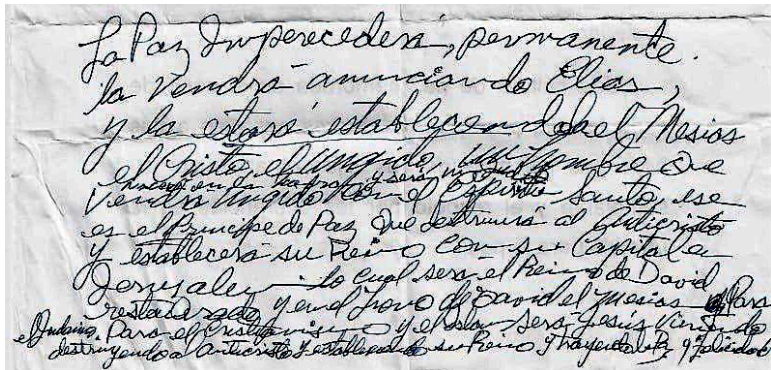 La Paz Imperecedera, permanente.
la vendrá anunciando Elías,
y la estará estableciendola el Mesías
el Cristo, el Ungido, un hombre que
nacerá en la tierra y será
Vendrá Ungido con el Espíritu Santo, ese
es el Principe de Paz que destruirá al anticristo
y establecerá su Reino con su Capital en
Jerusalen. Lo cual será el Reino de David
restaurado y en el Trono de David el Mesías Para
el Judaísmo. Para el Cristianismo y el Islam será Jesús Viniendo
destruyendo al anticristo y estableciendo su Reino y trayendo la Paz y felicidad